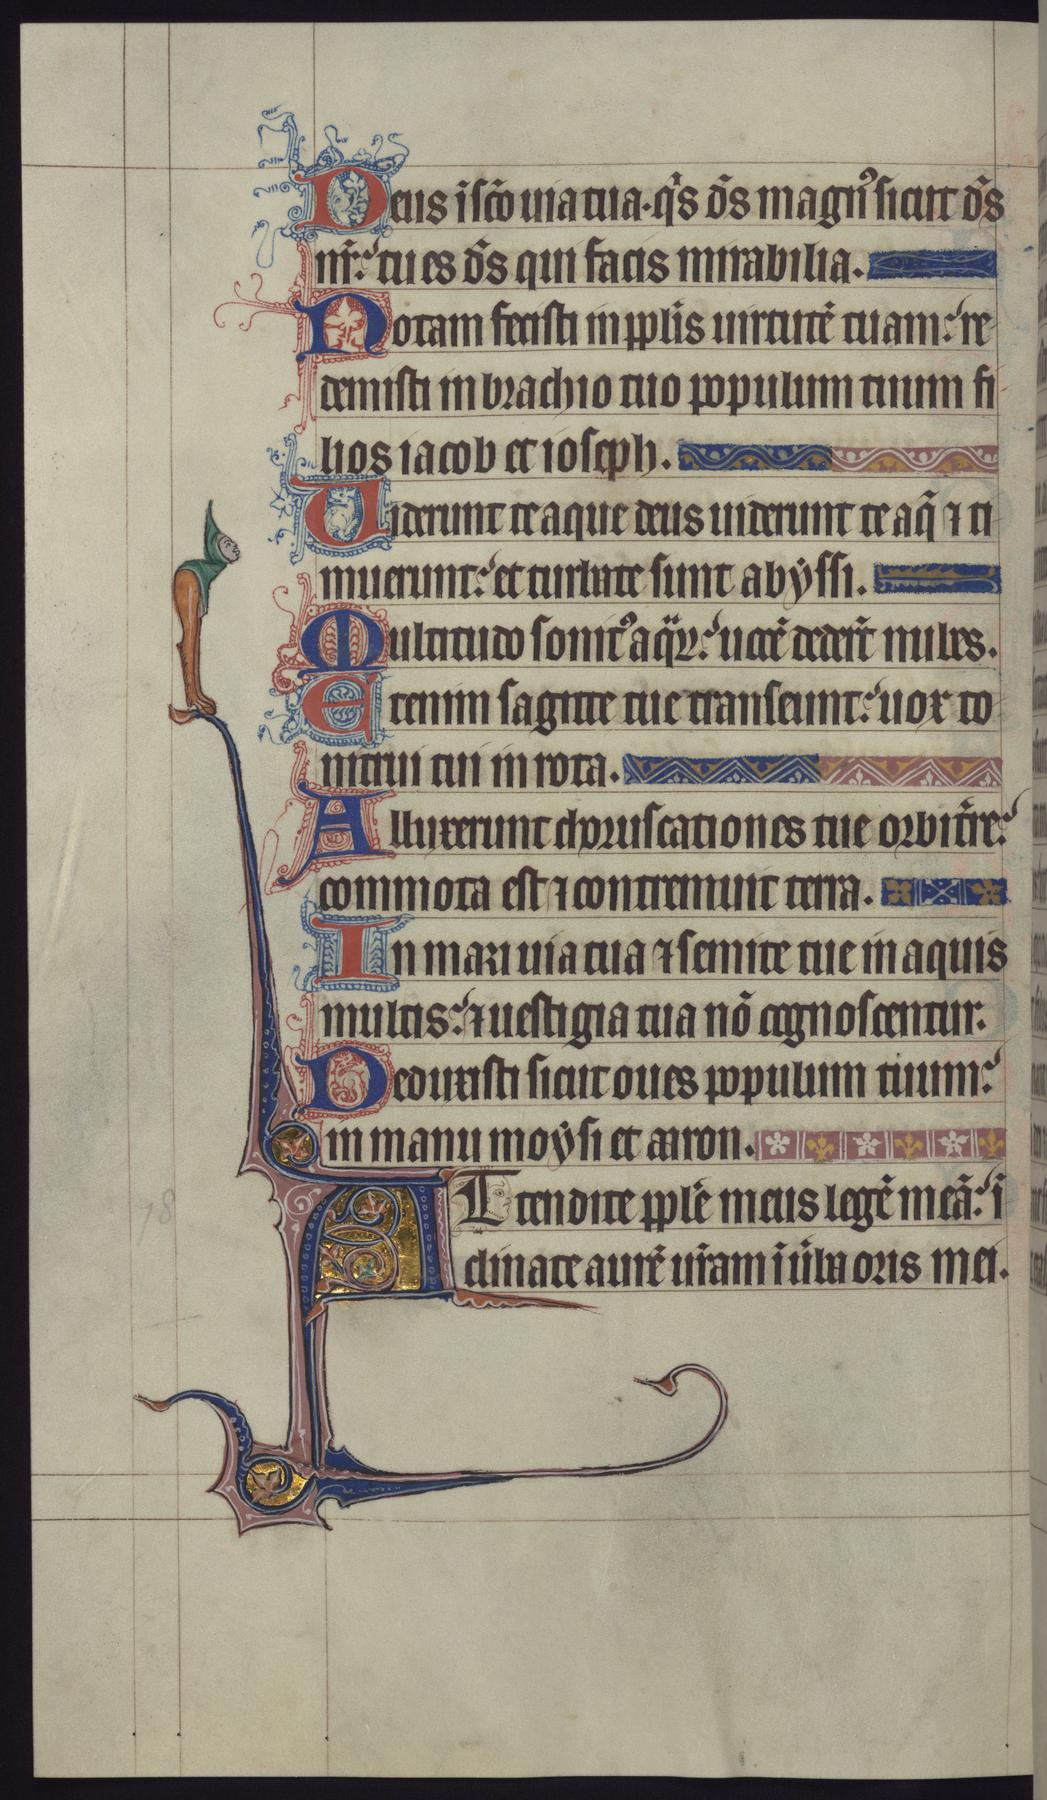 Deus ī sc̄o uia tua. q̄s d̄s magn⁹ sicut d̄s
nr̄: tu es d̄s qui facis mirabilia.
Notam fecisti in ppl̄is uirtutē tuam: re
demisti in brachio tuo populum tuum fi
lios iacob et ioseph.
Uiderunt te aque deus uiderunt te aq̄ ⁊ ti
muerunt: et turbate sunt abẏssi.
Multitudo sonit⁹ aq̄ꝝ: uocē dedert̄ nubes.
Etenim sagitte tue transeunt: uox to
nitrui tui in rota.
Alluxerunt choruscationes tue orbi tr̄re:
commota est ⁊ contremuit terra.
In mari uia tua ⁊ semite tue in aquis
multis: ⁊ uestigia tua nō cognoscentur.
Deduxisti sicut oues populum tuum:
in manu moẏsi et aaron.
Attendite pplē meus legē meā: ī
clinate aurē ur̄am ī ūba oris mei.
78